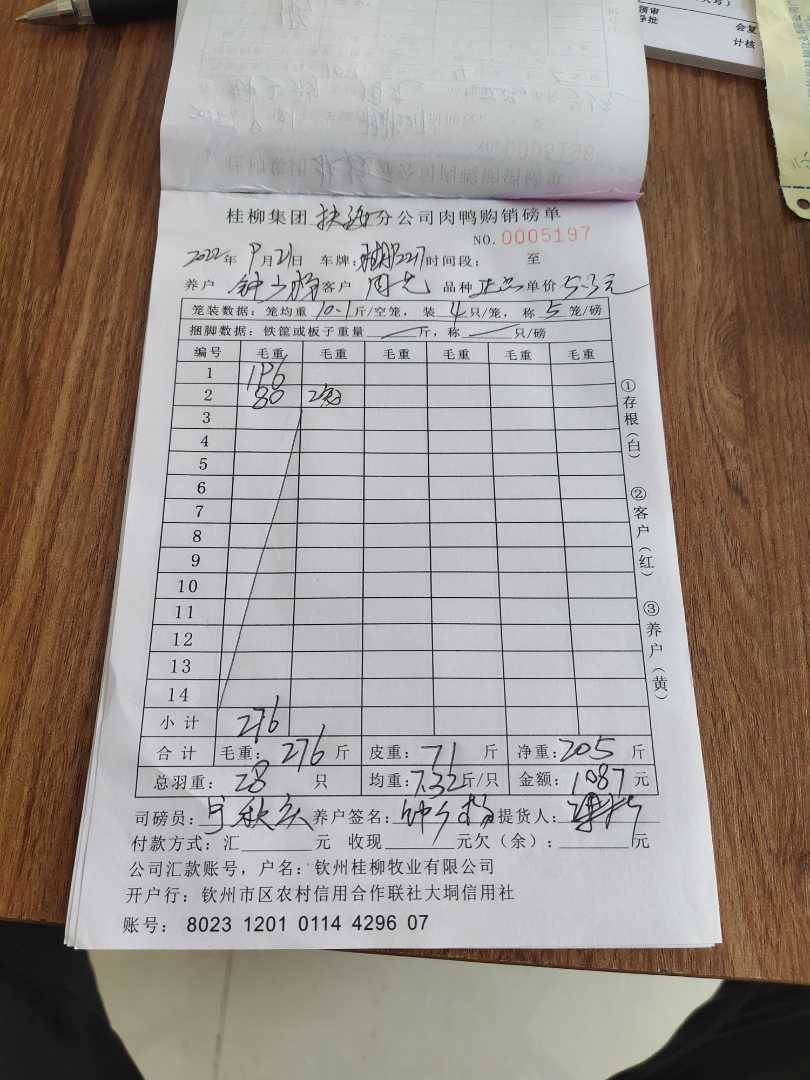 桂柳集团 扶绥 分公司肉鸭购销磅单
NO. 0005197
2022年 9月21日 车牌: 2217 时间段: 至
养户 钟 客户 周 品种 正品 单价 5.3元
笼装数据: 笼均重 10.1 斤/空笼, 装 4 只/笼, 称 5 笼/磅
捆脚数据: 铁筐或板子重量 斤, 称 只/磅
编号 毛重 毛重 毛重 毛重 毛重 毛重
1 196
2 80 2笼
3
4
5
6
7
8
9
10
11
12
13
14
小计 276
合计 毛重: 276 斤 皮重: 71 斤 净重: 205 斤
总羽重: 28 只 均重: 7.32 斤/只 金额: 1087 元
司磅员: 养户签名: 钟 提货人:
付款方式: 汇 元 收现 元欠(余): 元
公司汇款账号, 户名: 钦州桂柳牧业有限公司
开户行: 钦州市区农村信用合作联社大垌信用社
账号: 8023 1201 0114 4296 07
①存根(白)
②客户(红)
③养户(黄)